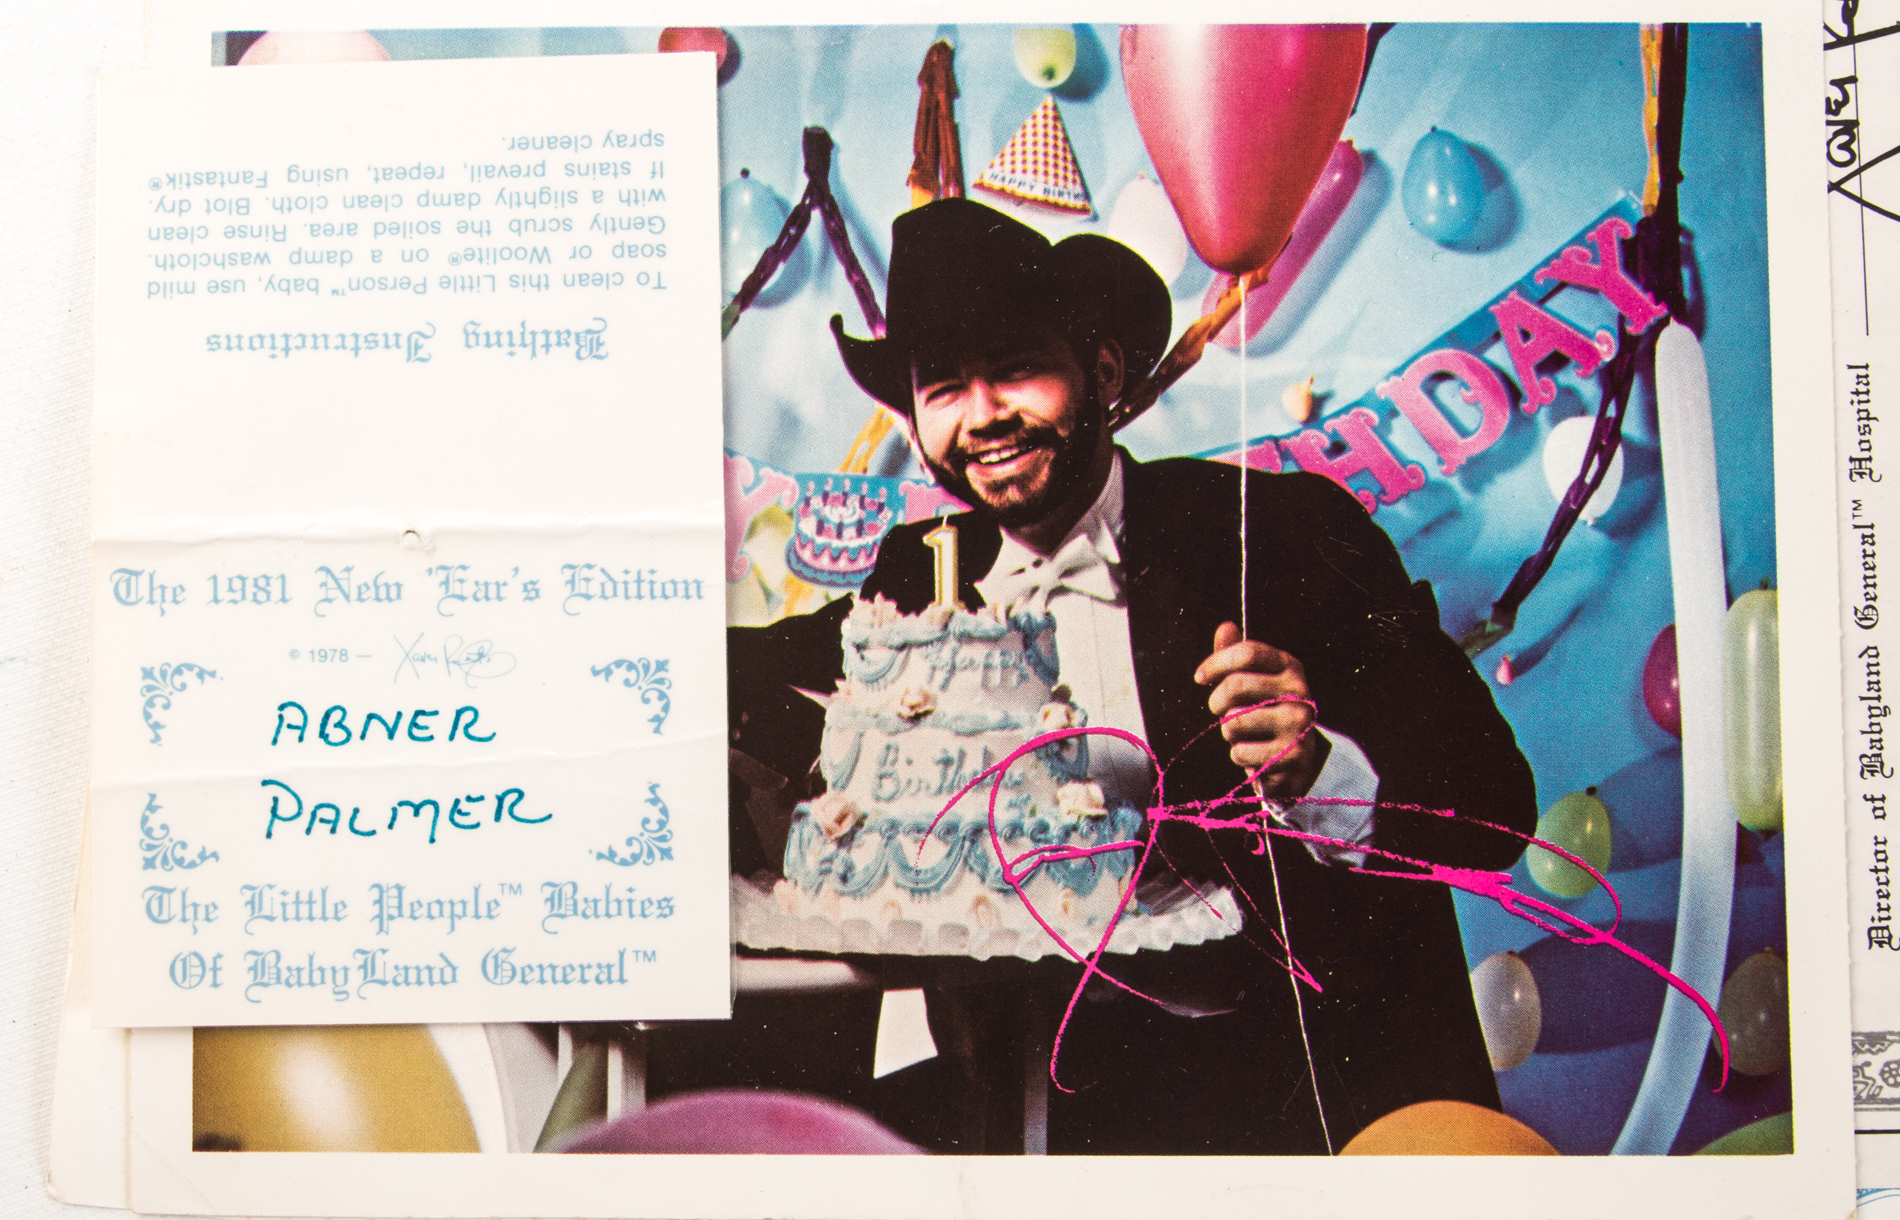 To clean this Little Person™ baby, use mild
soap or Woolite® on a damp washcloth.
Gently scrub the soiled area. Rinse clean
with a slightly damp clean cloth. Blot dry.
If stains prevail, repeat, using Fantastik®
spray cleaner.
Bathing Instructions
The 1981 New 'Ear's Edition
© 1978 — Xavier Roberts
ABNER
PALMER
The Little People™ Babies
Of BabyLand General™
HAPPY BIRTH
Y
THDAY
1
Happy
Birthday
Xavier
Director of Babyland General™ Hospital